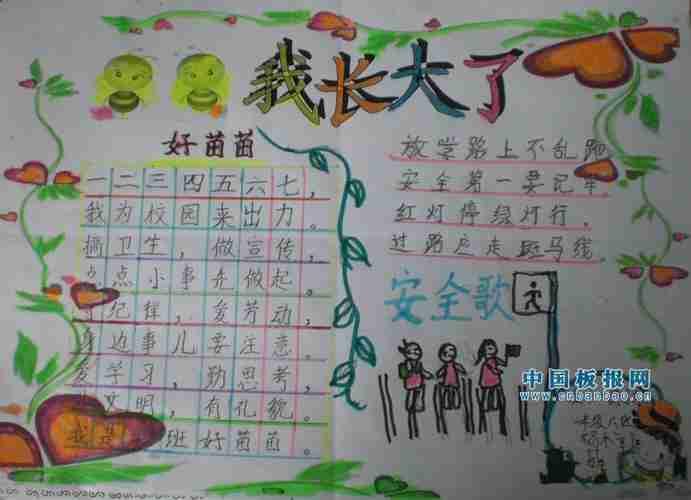 我长大了
好苗苗
一二三四五六七，
我为校园来出力。
搞卫生，做宣传，
点点小事先做起。
守纪律，爱劳动，
身边事儿要注意。
爱学习，勤思考，
文明，有礼貌。
我是一班好苗苗。
放学路上不乱跑
安全第一要记牢
红灯停绿灯行，
过路应走斑马线。
安全歌
中国板报网
www.cnbanbao.cn